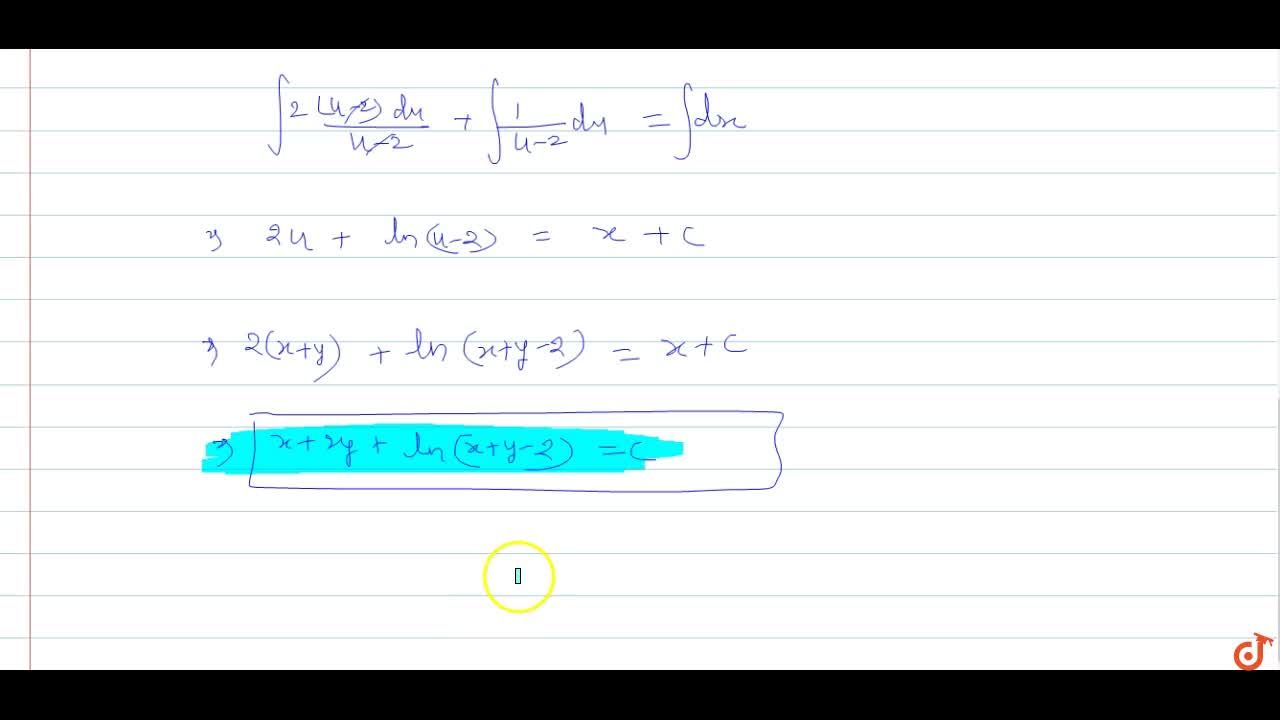 ∫ 2 (u-2) du / u-2 + ∫ 1 / u-2 du = ∫ dx
⇒ 2u + ln(u-2) = x + c
⇒ 2(x+y) + ln(x+y-2) = x + c
⇒ x+2y + ln(x+y-2) = c